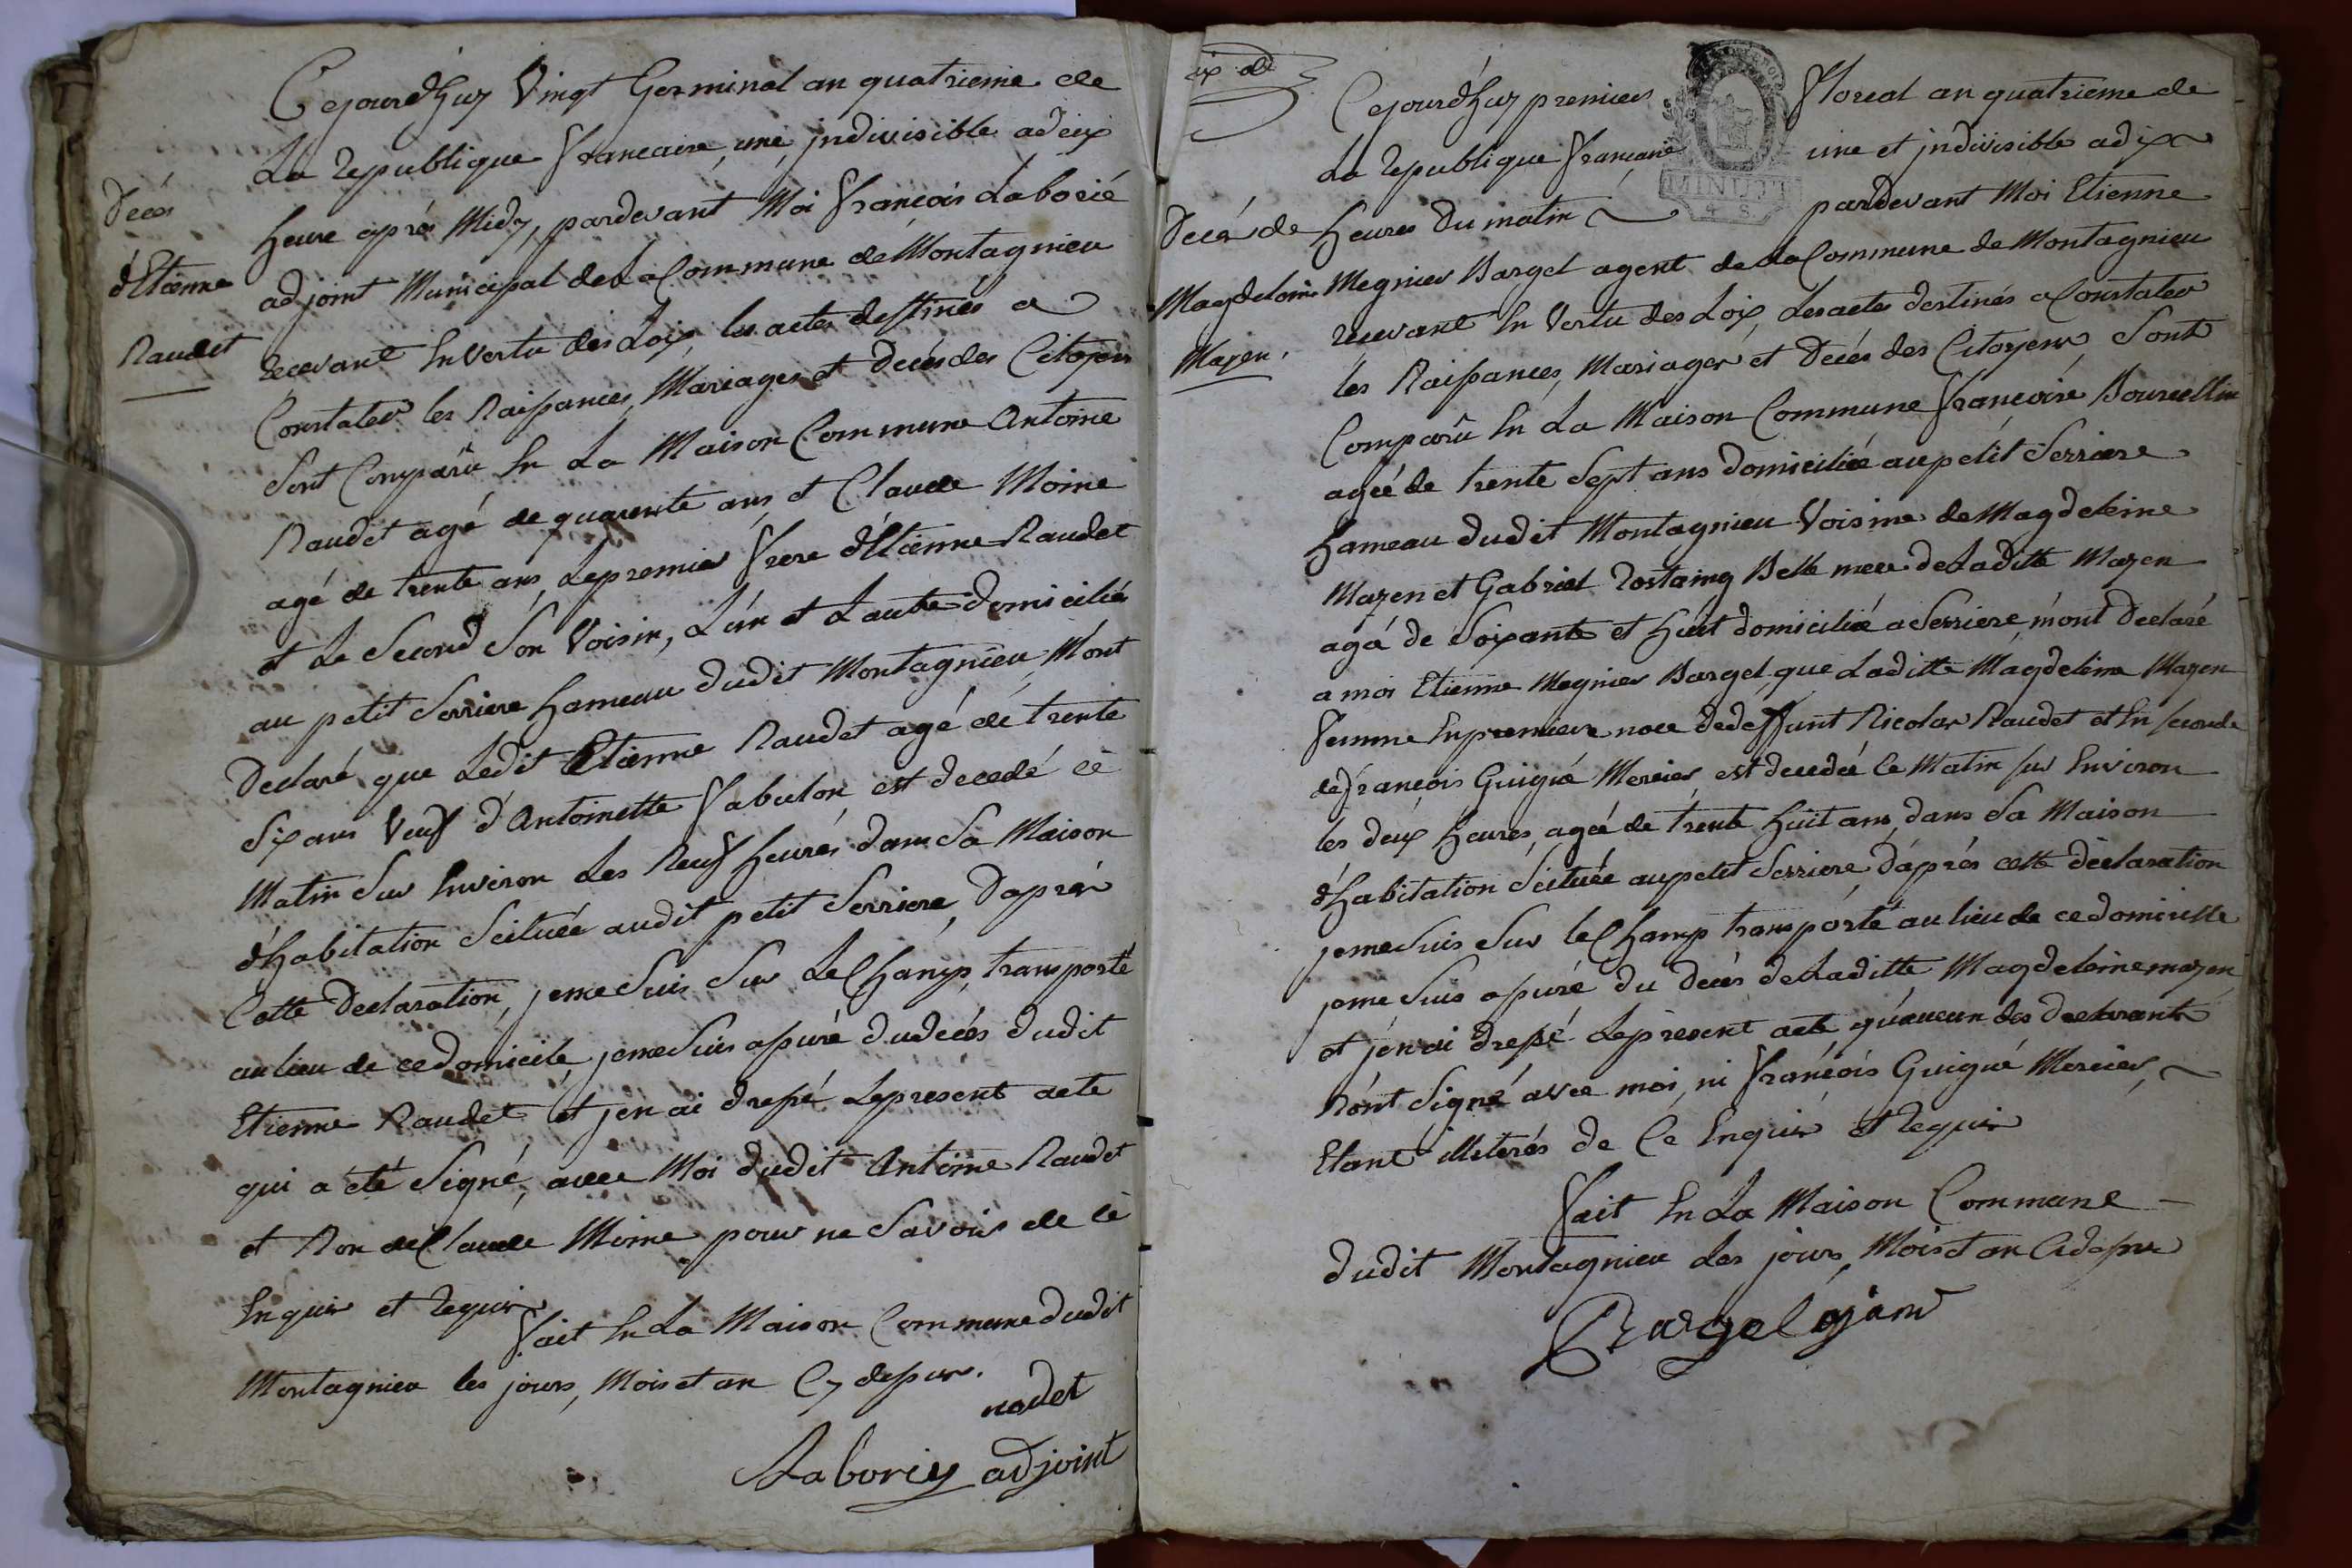 Cejourd'huy Vingt Germinal an quatrieme de
La republique francaise, une, jndivisible a deux
heure aprés Midy, pardevant Moi francois Laborié
adjoint Municipal de La Commune de Montagnieu
recevant En vertu des Loix, les actes destinés a
Constater les Naissances, Mariages et Decés des Citoyens
Sont Comparu En La Maison Commune Antoine
Naudet agé de quarente ans, et Claude Moine
agé de trente ans, Le premier frere d'Etienne Naudet
et Le Second Son Voisin, L'un et L'autre domicilié
au petit Serriere hameau dudit Montagnieu, M'ont
Declaré que Ledit Etienne Naudet agé de trente
Six ans Veuf d'Antoinette fabulon est decedé ce
Matin Sur Environ Les Neuf heures dans Sa Maison
d'habitation Scituée audit petit Serriere, D'aprés
Cette Declaration, je me Suis Sur Le Champ, transporté
au lieu de ce domicile, je me Suis assuré du decés dudit
Etienne Naudet et j'en ai dressé Le present acte
qui a eté Signé, avec Moi dudit Antoine Naudet
et Non de Claude Moine pour ne Savoir de ce
Enquis et requis
fait En La Maison Commune dudit
Montagnieu les jours, Mois et an Cy dessus.
nodet
Laboriey adjoint
Decés
d'Etienne
Naudet
Cejourd'huy premier floreal an quatrieme de
La republique francaise une et jndivisible a dix
heures du matin pardevant Moi Etienne
Megnier Bargel agent de La Commune de Montagnieu
recevant En Vertu des Loix, Les acte destinés a Constater
les Naissances, Mariages et Decés des Citoyens, Sont
Comparu En La Maison Commune francoise Bourcellin
agée de trente Sept ans domiciliée au petit Serriere
hameau dudit Montagnieu Voisine de Magdeleine
Mazen et Gabriel rostaing Belle mere de Laditte Mazen
agá de Soixante et huit domiciliée a Serriere m'ont Declaré
a moi Etienne Megnier Bargel que Laditte Magdeleine Mazen
femme En premiere noce de deffunt Nicolas Naudet et En seconde
de francois Guigué Mercier, est decedée Ce Matin sur Environ
les deux heures, agée de trente huit ans, dans Sa Maison
d'habitation Scituée au petit Serriere, d'aprés cette déclaration
je me Suis Sur le Champ transporté au lieu de ce domicille
je me Suis assuré du decés de Laditte Magdeleine mazen
et j'en ai dressé Le present acte qu'aucun des declarants
N'ont Signé avec moi, ni francois Guigué Mercier,
Etant illeterés de Ce Enquis et requis
fait En La Maison Commune
dudit Montagnieu Les jours, Mois et an Cidessus
Bargel
Decés de
Magdeleine
Mazen.
MINUTE